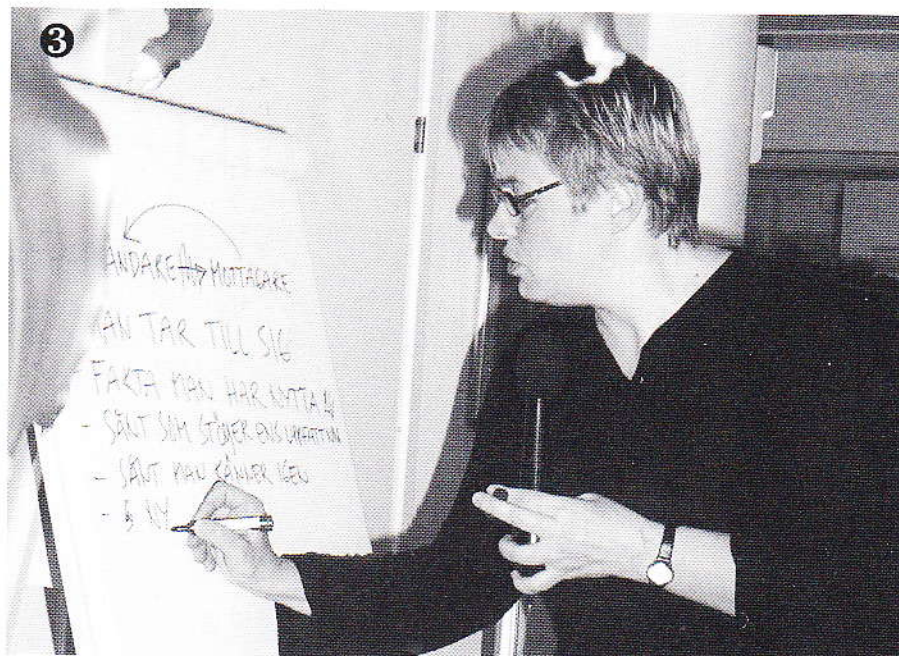 3
ANDARE → MOTTAGARE
AN TAR TILL SIG
FAKTA MAN HAR NYTTA AV
- SÅNT SOM STÖDJER ENS UPPFATTNIN
- SÅNT MAN KÄNNER IGEN
- 5 NY